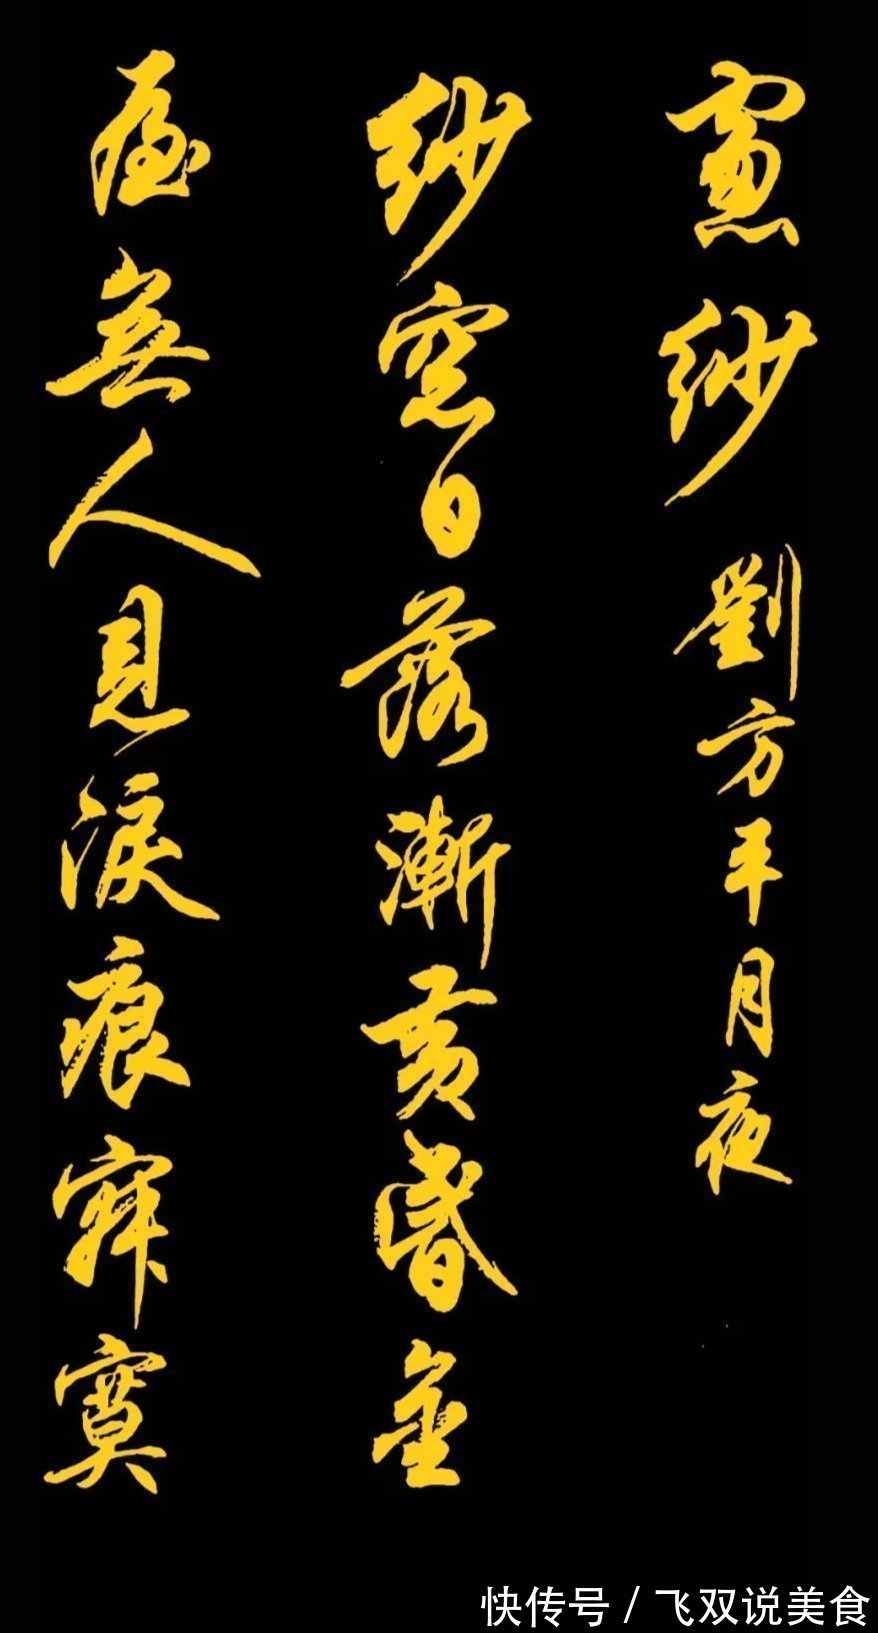 窗紗劉方平月夜
紗窓日落漸黄昏金
屋無人見淚痕寂寞
快传号/飞双说美食